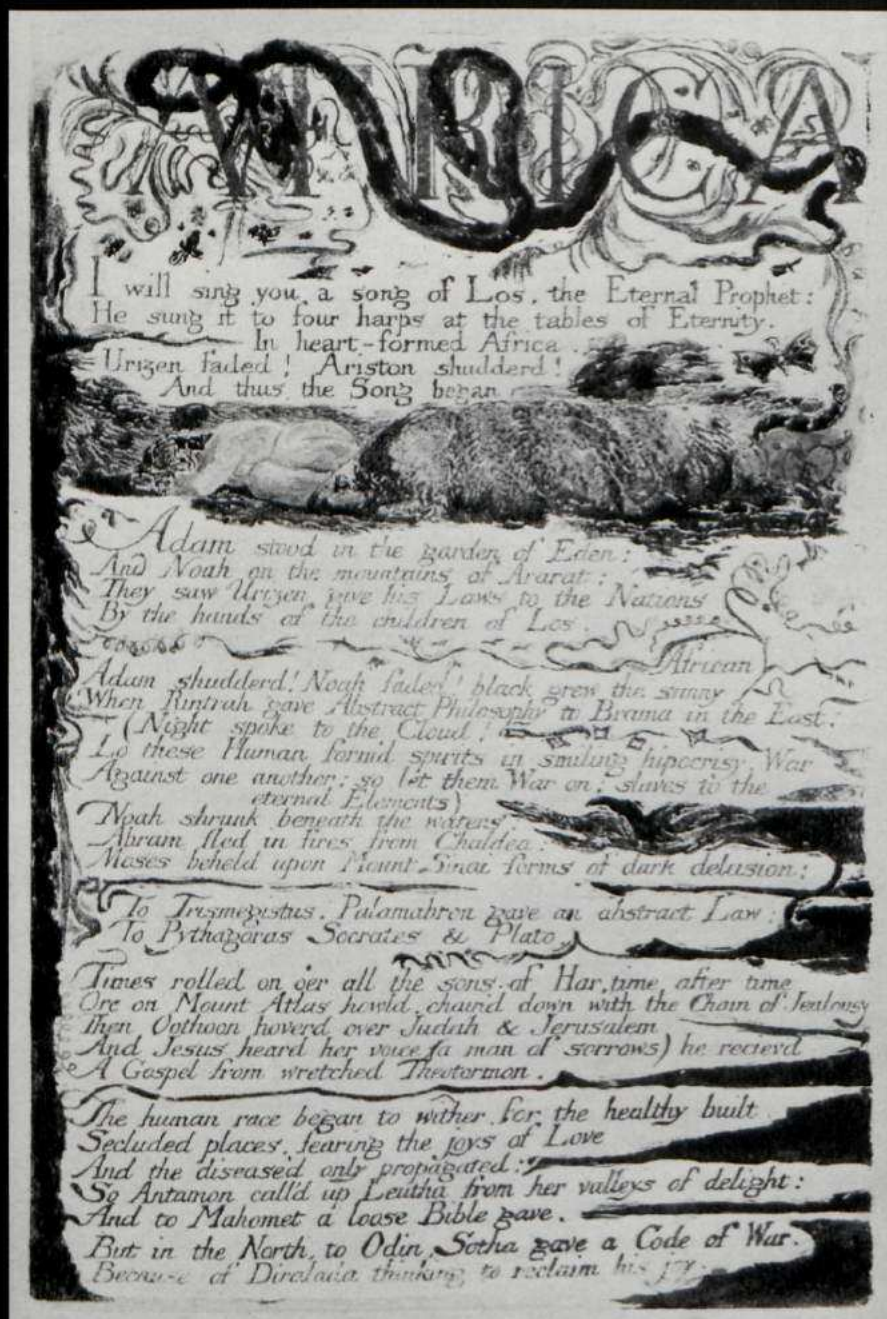 AFRICA
I will sing you a song of Los, the Eternal Prophet:
He sung it to four harps at the tables of Eternity.
In heart-formed Africa.
Urizen faded! Ariston shudderd!
And thus the Song began
Adam stood in the garden of Eden:
And Noah on the mountains of Ararat:
They saw Urizen give his Laws to the Nations
By the hands of the children of Los.
African
Adam shudderd! Noah faded! black grew the sunny
When Rintrah gave Abstract Philosophy to Brama in the East:
(Night spoke to the Cloud!
Lo these Human form'd spirits in smiling hipocrisy. War
Against one another; so let them War on; slaves to the
eternal Elements)
Noah shrunk beneath the waters;
Abram fled in fires from Chaldea;
Moses beheld upon Mount Sinai forms of dark delusion:
To Trismegistus. Palamabron gave an abstract Law:
To Pythagoras Socrates & Plato.
Times rolled on o'er all the sons of Har, time after time
Orc on Mount Atlas howld, chain'd down with the Chain of Jealousy
Then Oothoon hoverd over Judah & Jerusalem
And Jesus heard her voice (a man of sorrows) he recievd
A Gospel from wretched Theotormon.
The human race began to wither, for the healthy built
Secluded places, fearing the joys of Love
And the diseased only propagated:
So Antamon call'd up Leutha from her valleys of delight:
And to Mahomet a loose Bible gave.
But in the North, to Odin, Sotha gave a Code of War.
Because of Diralada thinking to reclaim his joy.